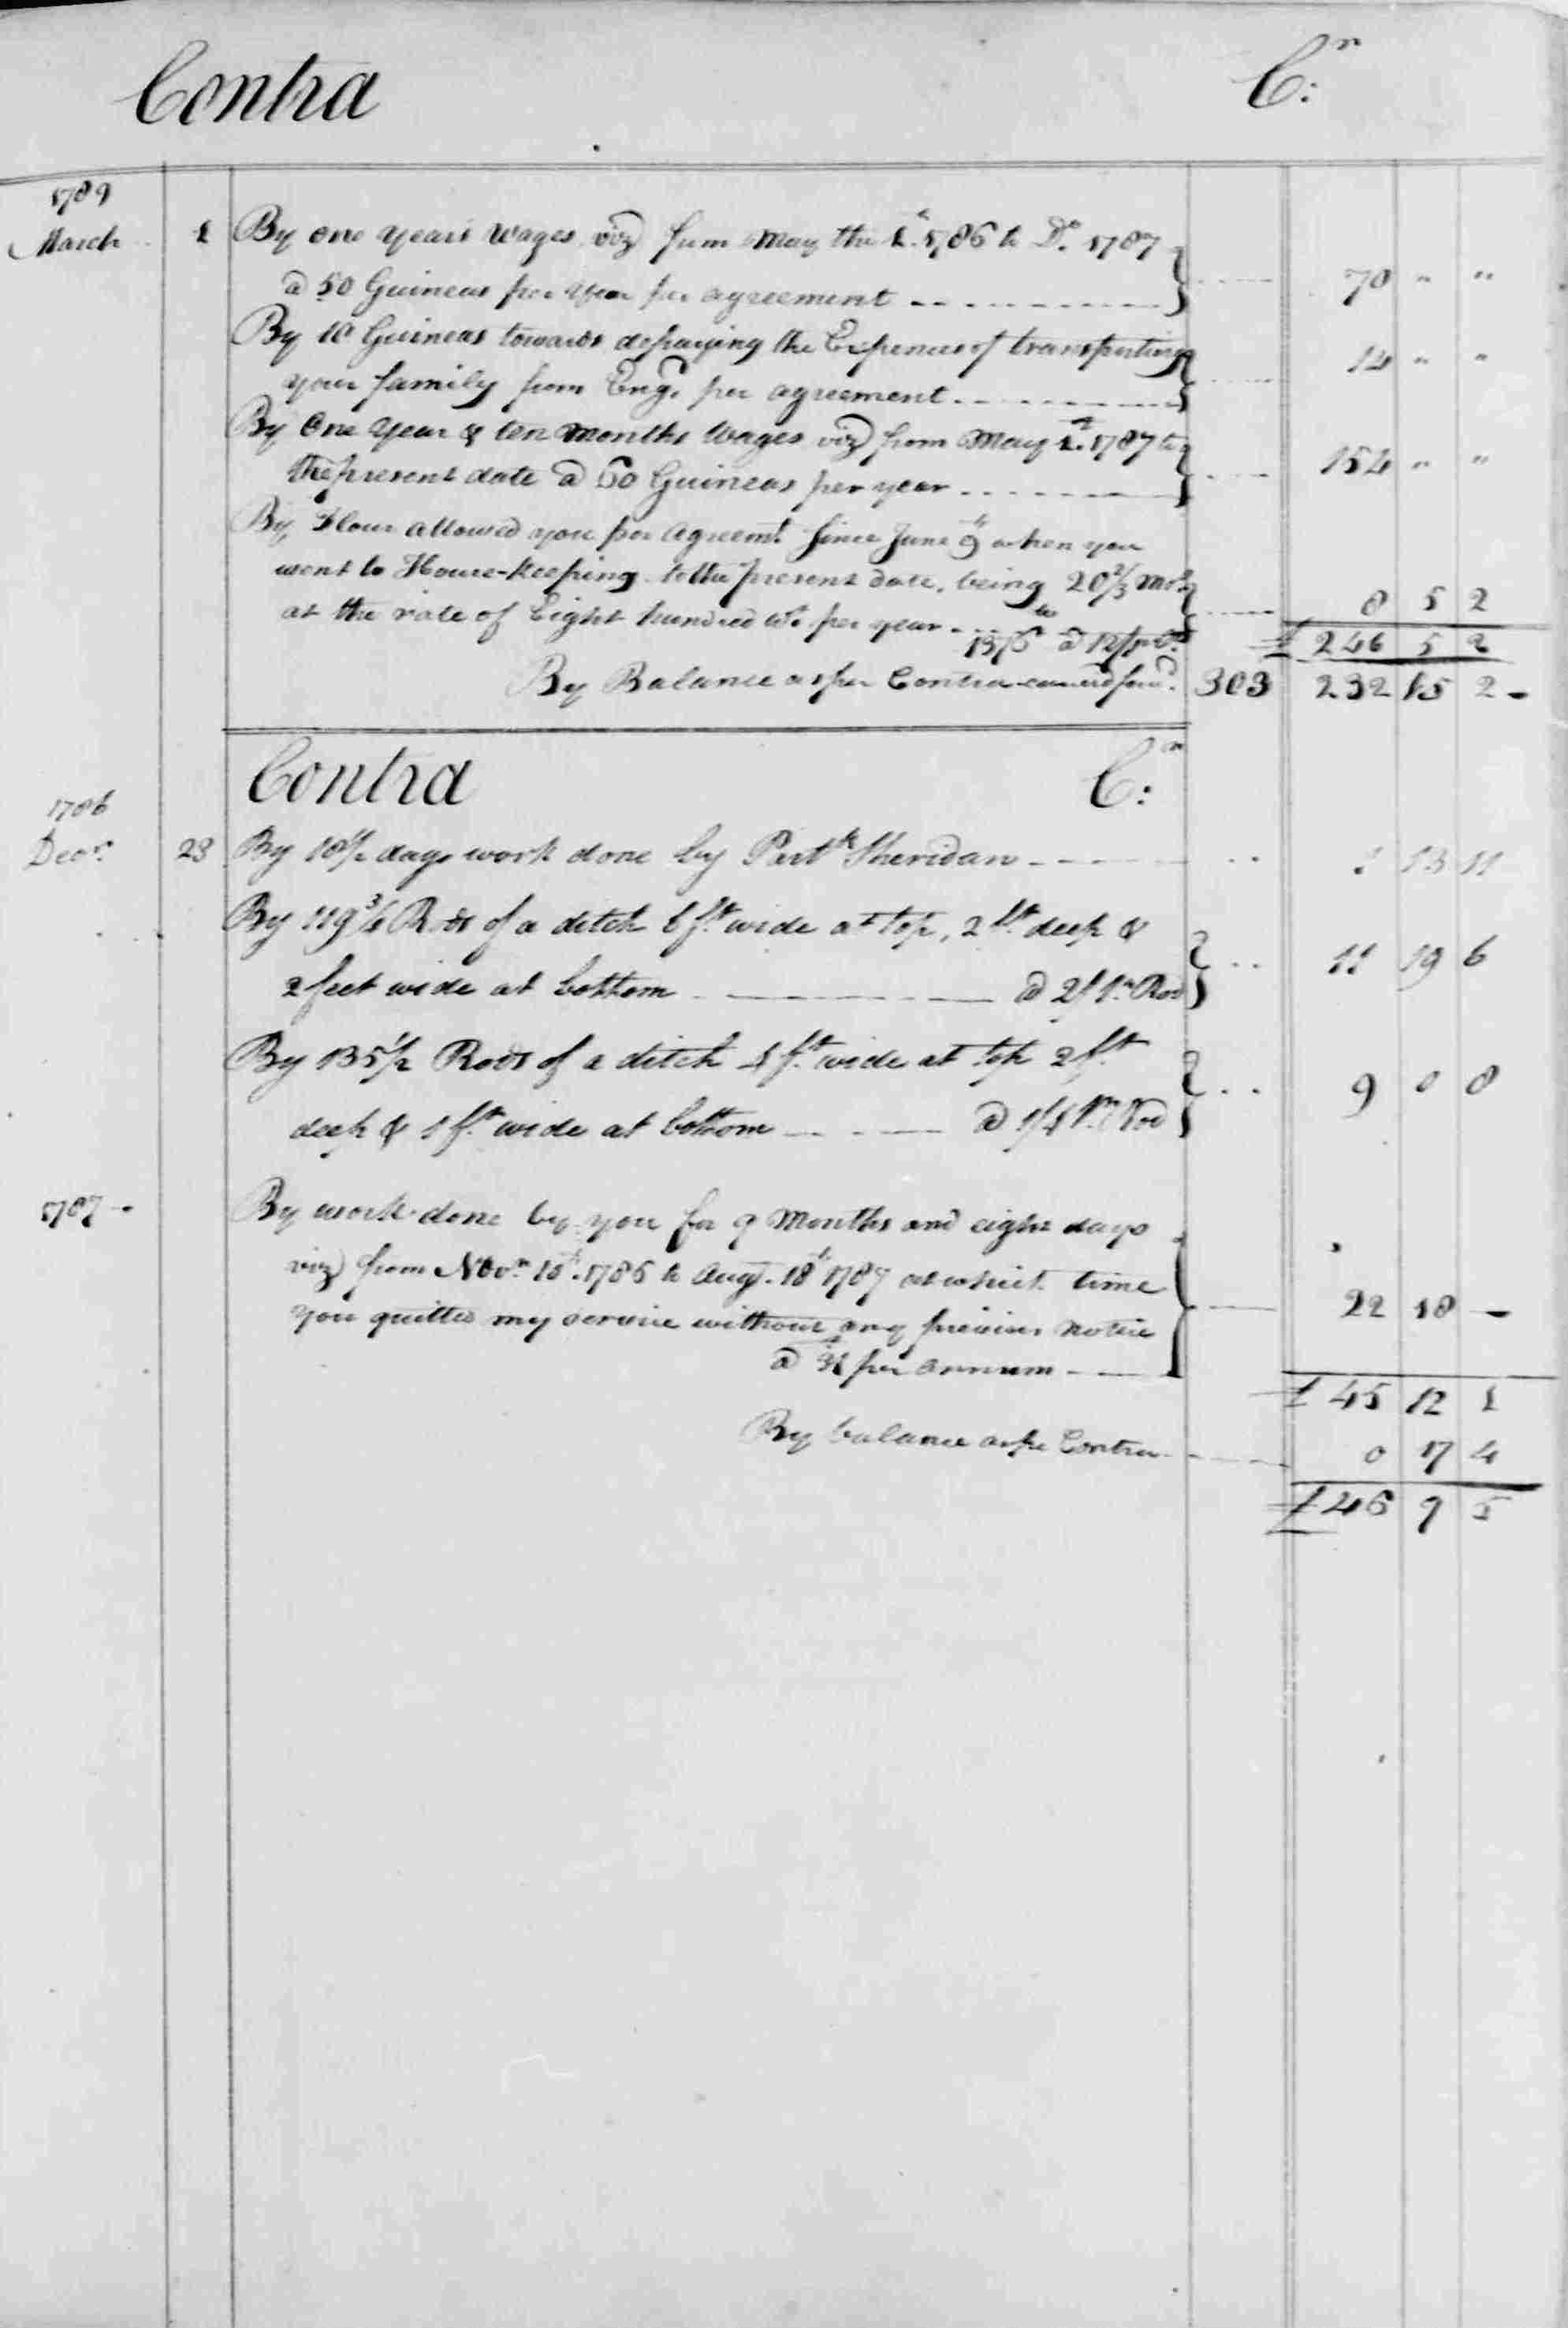 Contra Cr:
1789
March 1 By one years Wages viz from May the 1t. 1786 to Do. 1787
a 50 Guineas per Year per agreement 70 " "
By 10 Guineas towards defraying the Expences of transporting
your family from Engd. per agreement 14 " "
By One Year & ten Months Wages viz from May 1t. 1787 to
the present date a 60 Guineas per year 154 " "
By Flour allowed you per Agreemt. since June 9th when you
went to House-keeping to the present date, being 20 2/3 Mos.
at the rate of Eight hundred wt. per year 8 5 2
1376 lb a 12/ per Ct. £ 246 5 2
By Balance as per Contra carried forwd. 303 232 15 2
Contra Cr:
1786
Decr. 23 By 18 1/2 days work done by Patk. Sheridan 1 13 11
By 119 3/4 Rods of a ditch 6 ft. wide at top, 2 ft. deep &
2 feet wide at bottom a 2/ pr. Rod 11 19 6
By 135 1/2 Rods of a ditch 4 ft. wide at top 2 ft.
deep & 1 ft. wide at bottom a 1/4 pr. Rod 9 0 8
1787 By work done by you for 9 Months and eight days
viz from Novr. 10th. 1786 to Augt. 18th 1787 at which time
you quitted my service without any previous notice 22 18 —
a per annum
£ 45 12 1
By balance as pr Contra 0 17 4
£ 46 9 5